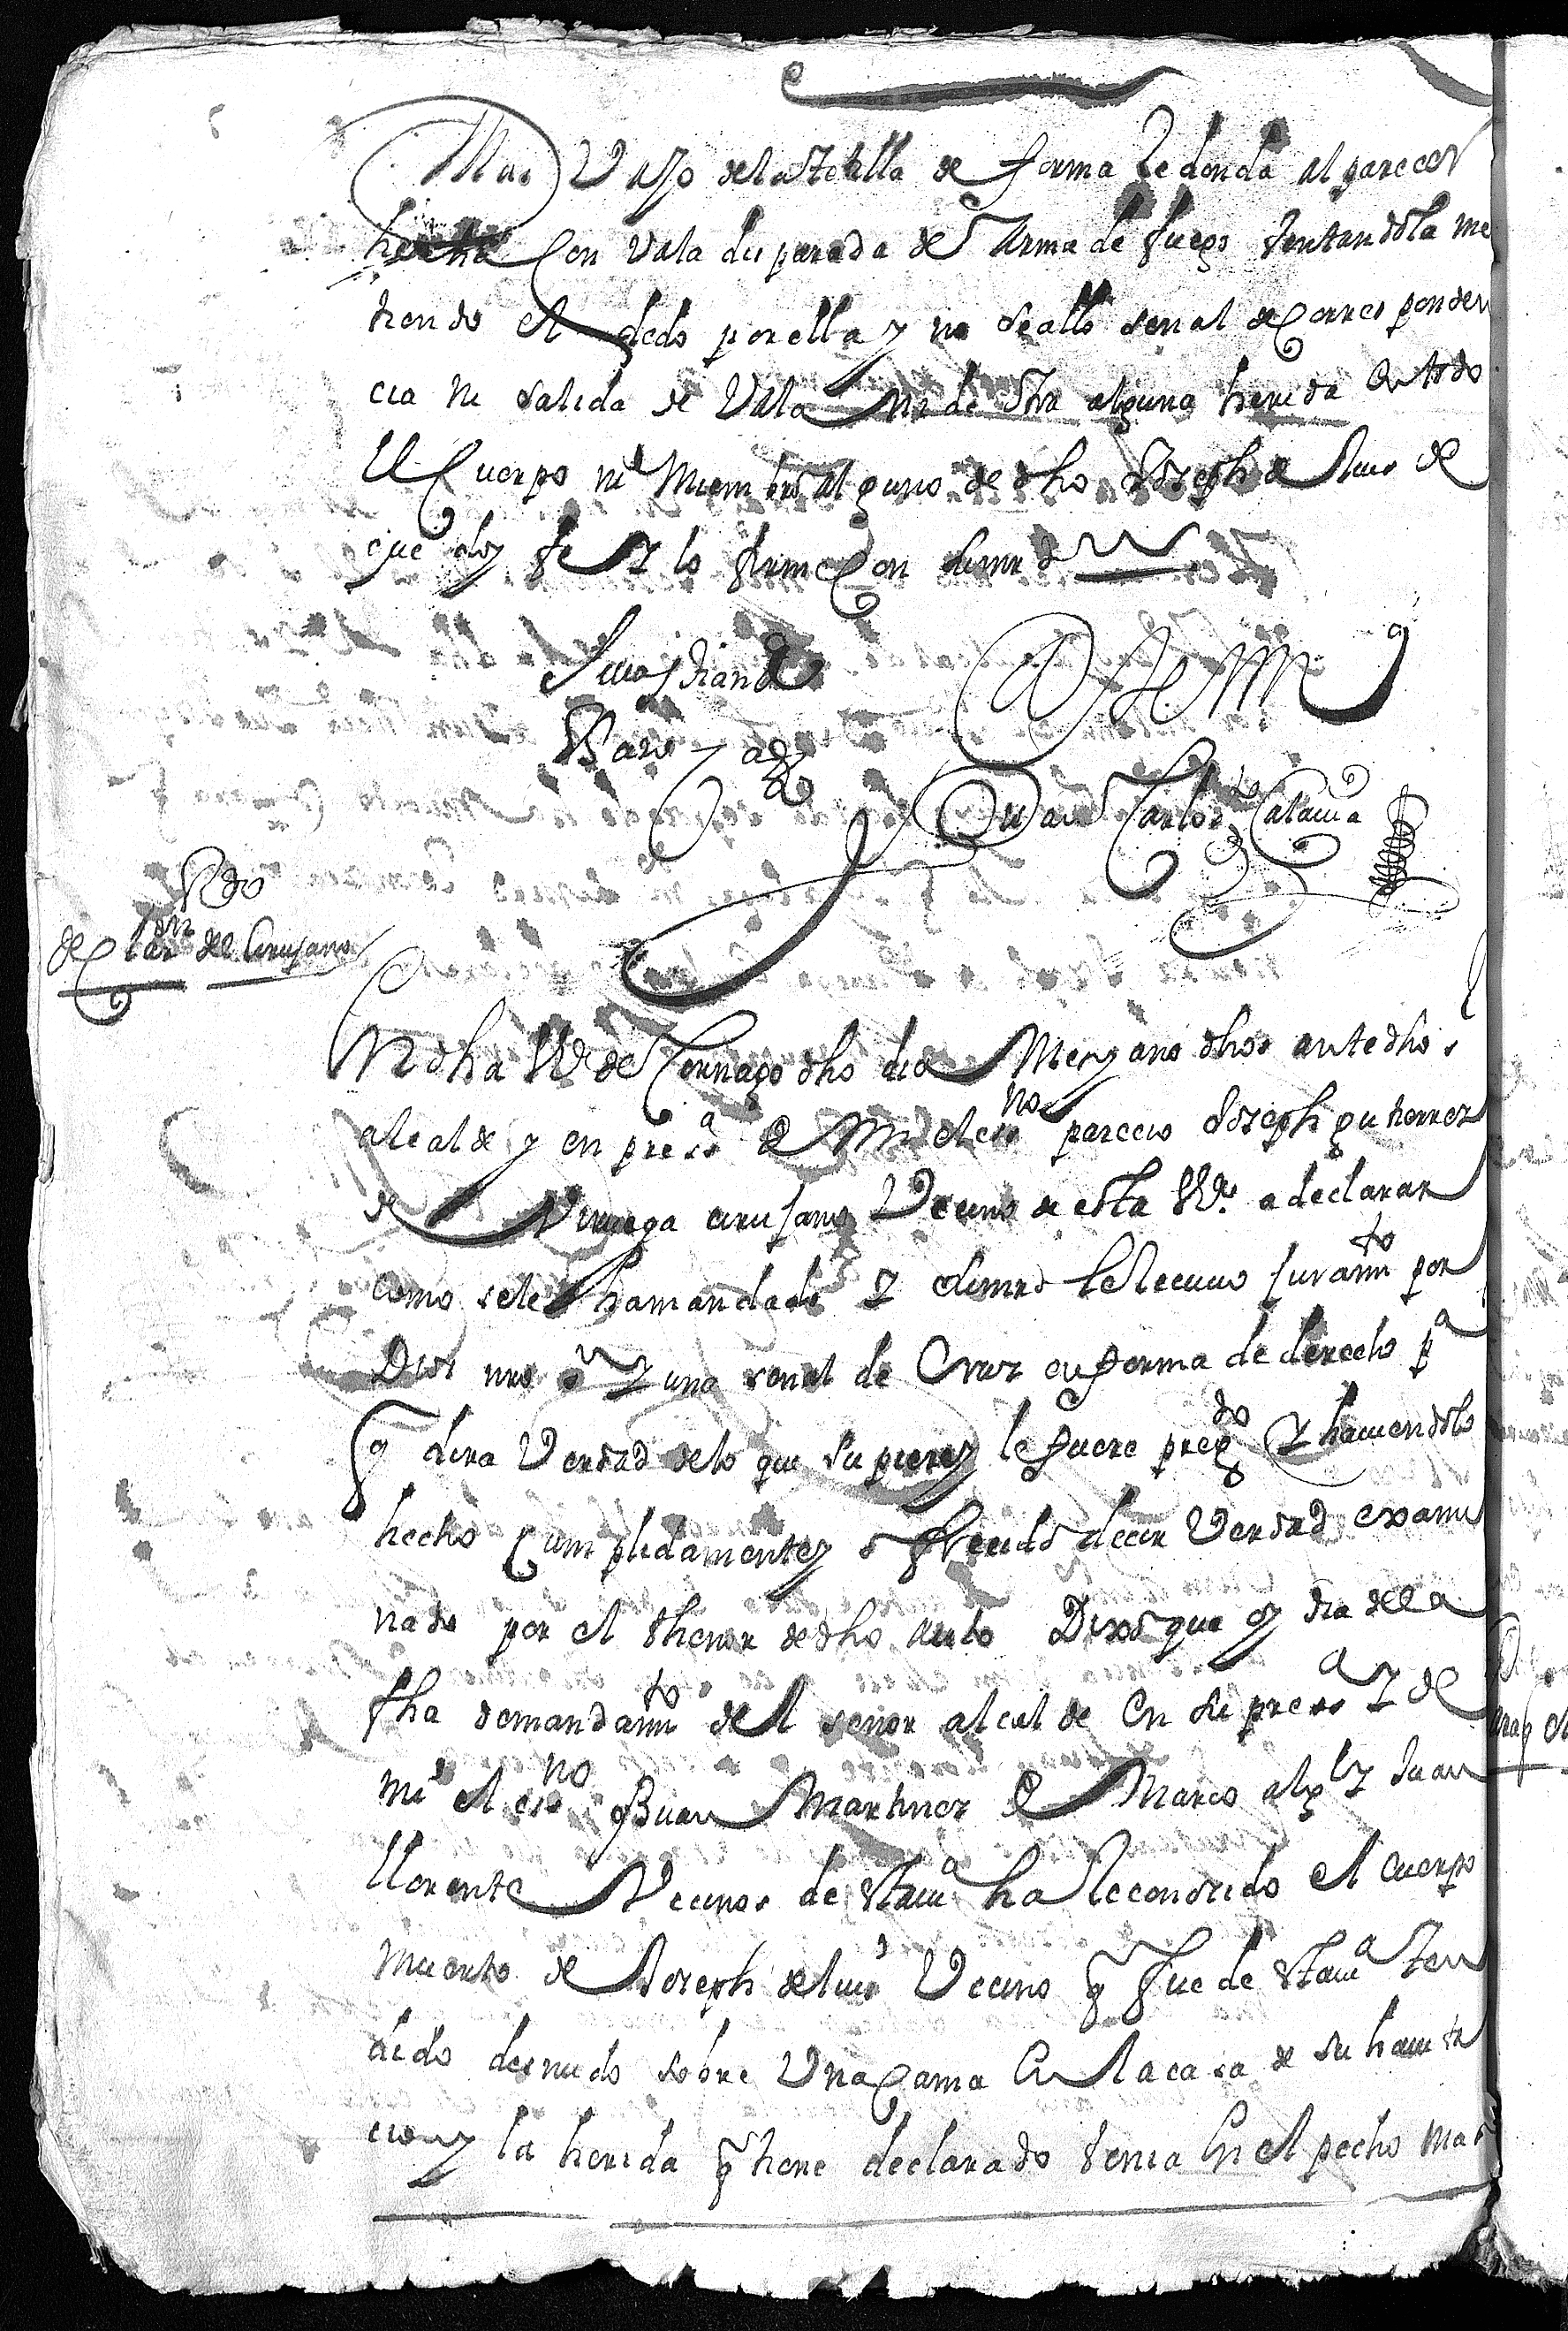 Mas Vajo de la tetilla de forma Redonda al parecer
hecha Con vala disparada de Arma de fuego tentandola me
tiendo el dedo por ella y no se allo señal de Corresponden
cia ni salida de Vala ni de otra alguna herida en todo
El Cuerpo ni Miembro alguno de dho Joseph de Luis de
que doy fe y lo firme Con su md
Seuastian
Ante Mi
Juan Carlos Calauia
declar del Cirujano
En dha Va de Cornago dho dia Mes y año dhos ante dho sr
alcalde y en presa de Mi el esno parecio Joseph gutierrez
de Cirujano Vecino de esta Va a declarar
como se le ha mandado y su md le Reciuio juramto por
Dios nro sr y una señal de Cruz en forma de derecho pa
q dira Verdad de lo que supiere y le fuere pregdo y hauiendolo
hecho Cumplidamente y ofrecido decir Verdad exami
nado por el thenor de dho auto Dixo que oy dia de la
fha de mandamto del señor alcalde en su presa y de
mi el esno Juan Martinez de Marco algl y Juan
llorente Vecinos de sta Va ha Reconozido el cuerpo
muerto de Joseph de luis Vecino q fue de sta Va ten
dido desnudo sobre Una Cama En la casa de su hauita
cion y la herida q tiene declarado tenia En el pecho mas